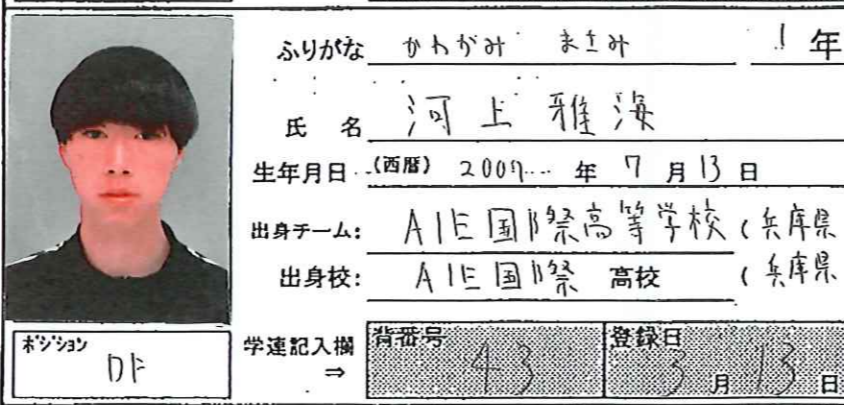 ふりがな かわがみ まさみ 1年
氏名 河上 雅海
生年月日 (西暦) 2007年 7月13日
出身チーム: AIE国際高等学校 (兵庫県
出身校: AIE国際 高校 (兵庫県
ポジション DF
学連記入欄 ⇒ 背番号 43 登録日 3月13日